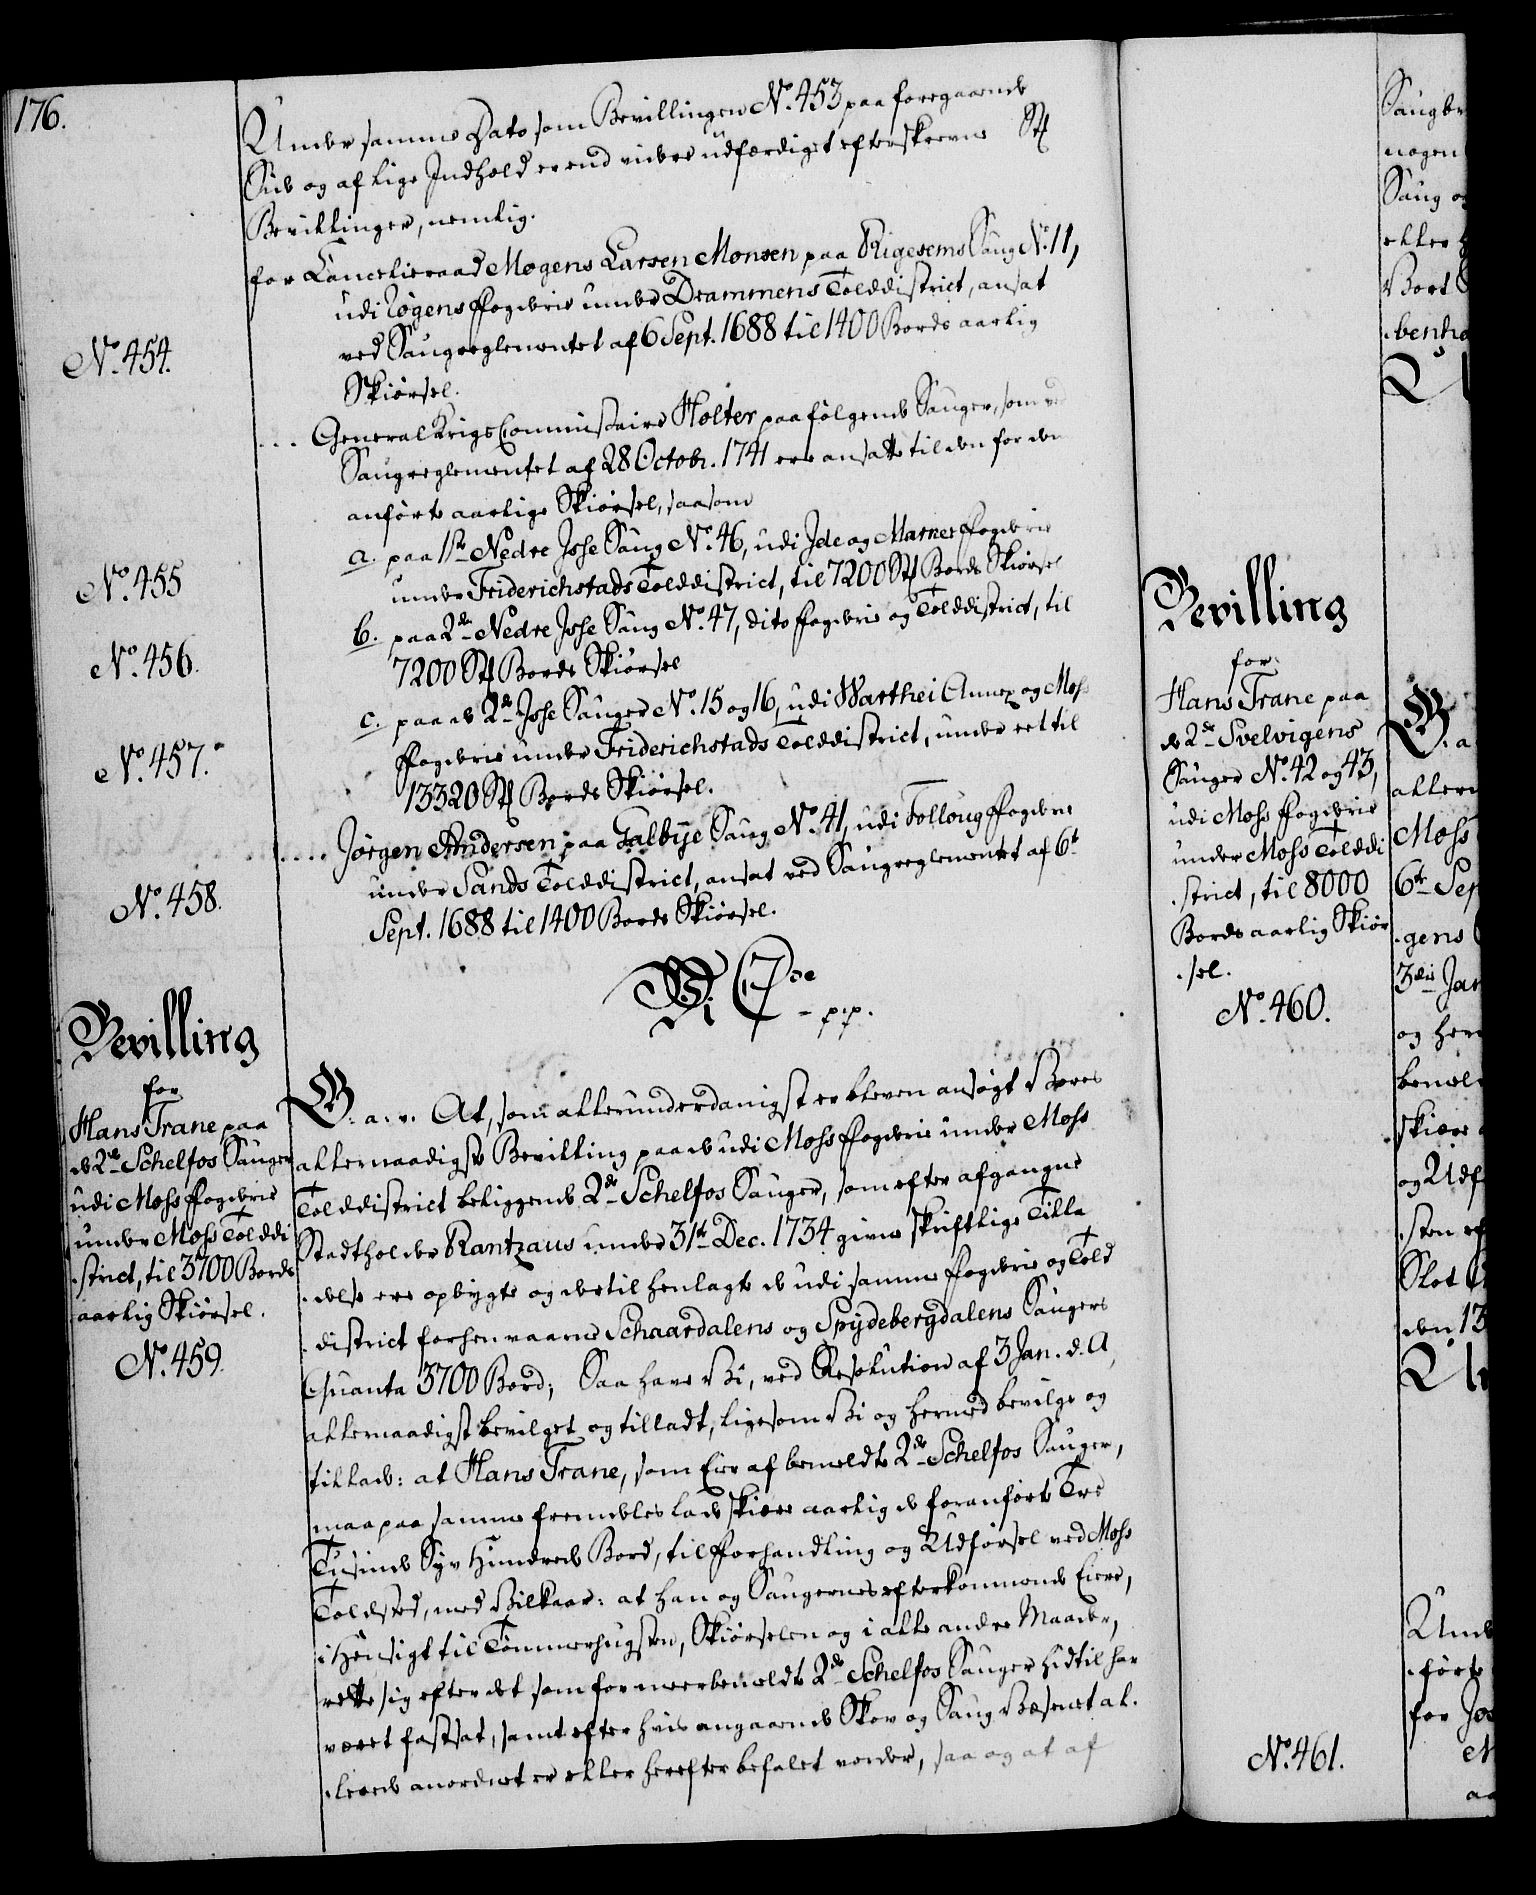 176.
Under samme Dato som Bevillingen No. 453 paa foregaaende
Side og af lige Indhold er end videre udfærdiget efterskrevne St
Bevillinger, nemlig.
for Cancelieraad Mogens Larsen Monsen paa Rigesems Saug No. 11,
udi Røgens Fogderie under Drammens Tolddistrict, ansat
ved Saugreglementet af 6 Sept. 1688 til 1400 Bords aarlig
No. 454.
Skiørsel.
... General Krigs Commissaire Holter paa følgende Sauger, som ved
Saugreglementet af 28 Octobr. 1741 ere ansatte til den for dem
anførte aarlige Skiørsel, saasom
a. paa 1ste Nedre Isse Saug No. 46, udi Ide og Marker Fogderie
No. 455
under Friderichstads Tolddistrict, til 7200 St Bords Skiørsel
b. paa 2de Nedre Isse Saug No. 47, dito Fogderie og Tolddistrict, til
No. 456.
7200 St Bords Skiørsel
c. paa de 2de Isse Sauger No. 15 og 16, udi Warthei Annex og Moss
No. 457.
Fogderie under Friderichstads Tolddistrict, under eet til
13320 St Bords Skiørsel.
.... Jørgen Andersen paa Galbye Saug No. 41, udi Folloug Fogderie
No. 458.
under Sands Tolddistrict, ansat ved Saugreglementet af 6te
Sept. 1688 til 1400 Bords Skiørsel.
Vi C 7de
- p.p.
Bevilling
for
Hans Trane paa
de 2de Schelfos Sauger
udi Moss Fogderie
under Moss Tolddi
strict, til 3700 Bords
aarlig Skiørsel.
No. 459.
G. a. v. At, som allerunderdanigst er bleven ansøgt Vores
allernaadigste Bevilling paa de udi Moss Fogderie under Moss
Tolddistrict beliggende 2de Schelfos Sauger, som efter afgangne
Stadtholder Rantzaus under 31te Dec. 1734 givne skriftlige Tilla
delse ere opbygte og dertil henlagte de udi samme Fogderie og Told
district forhen værne Schaardalens og Spydebergdalens Saugers
Quanta 3700 Bord; Saa have Vi, ved Resolution af 3 Jan. d. A,
allernaadigst bevilget og tilladt, ligesom Vi og hermed bevilge og
tillade: at Hans Trane, som Eier af bemeldte 2de Schelfos Sauger,
maa paa samme fremdeles lade skiære aarlig de foranførte Tre
Tusinde Syv Hundrede Bord, til Forhandling og Udførsel ved Moss
Toldsted, med Vilkaar: at han og Saugernes efterkommende Eiere,
i Hensigt til Tømmerhugsten, Skiørselen og i alle andre Maader,
rette sig efter det som for meerbemeldte 2de Schelfos Sauger hidtil har
været fastsat, samt efter hvis angaaende Skov og Saug Væsenet al.
lerede anordnet er eller herefter befalet vorder, saa og at af
Bevilling
for
Hans Trane paa
de 2de Svelvigens
Sauger No. 42 og 43,
udi Moss Fogderie
under Moss Tolddi
strict, til 8000
Bords aarlig Skiør
sel.
No. 460.
No. 461.
Saugbr
nogen
Saug o
eller
Bort
benha
G. a
allern
Moss
6te Sep
gens
3die Jan
og her
bemel
skiære
og Udf
sten ef
Slot
den 13
Und
førte
for Jo